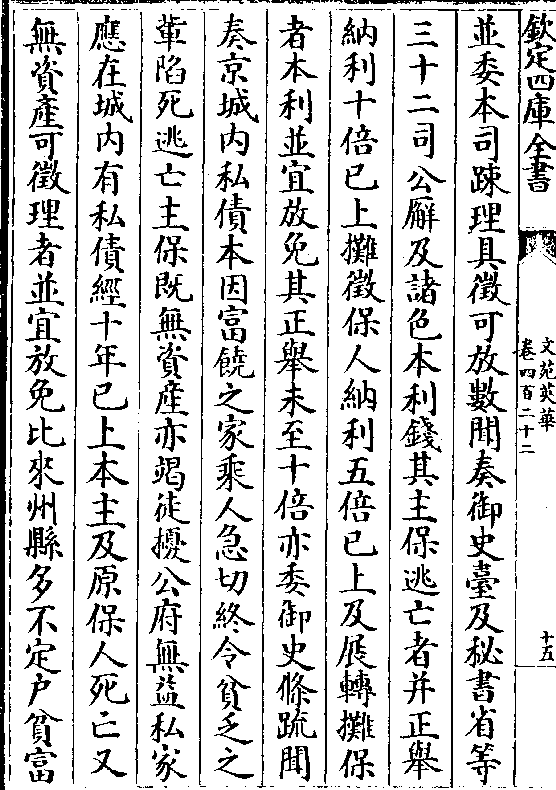 欽定四庫全書
文苑英華
卷四百二十二
十五
並委本司踈理具徵可放數聞奏御史臺及秘書省等
三十二司公廨及諸色本利錢其主保逃亡者并正舉
納利十倍已上攤徵保人納利五倍已上及展轉攤保
者本利並宜放免其正舉未至十倍亦委御史條䟽聞
奏京城内私債本因富饒之家乘人急切終令貧乏之
軰陷死逃亡主保既無資產亦竭徒擾公府無益私家
應在城内有私債經十年已上本主及原保人死亡又
無資產可徵理者並宜放免比來州縣多不定户貧富